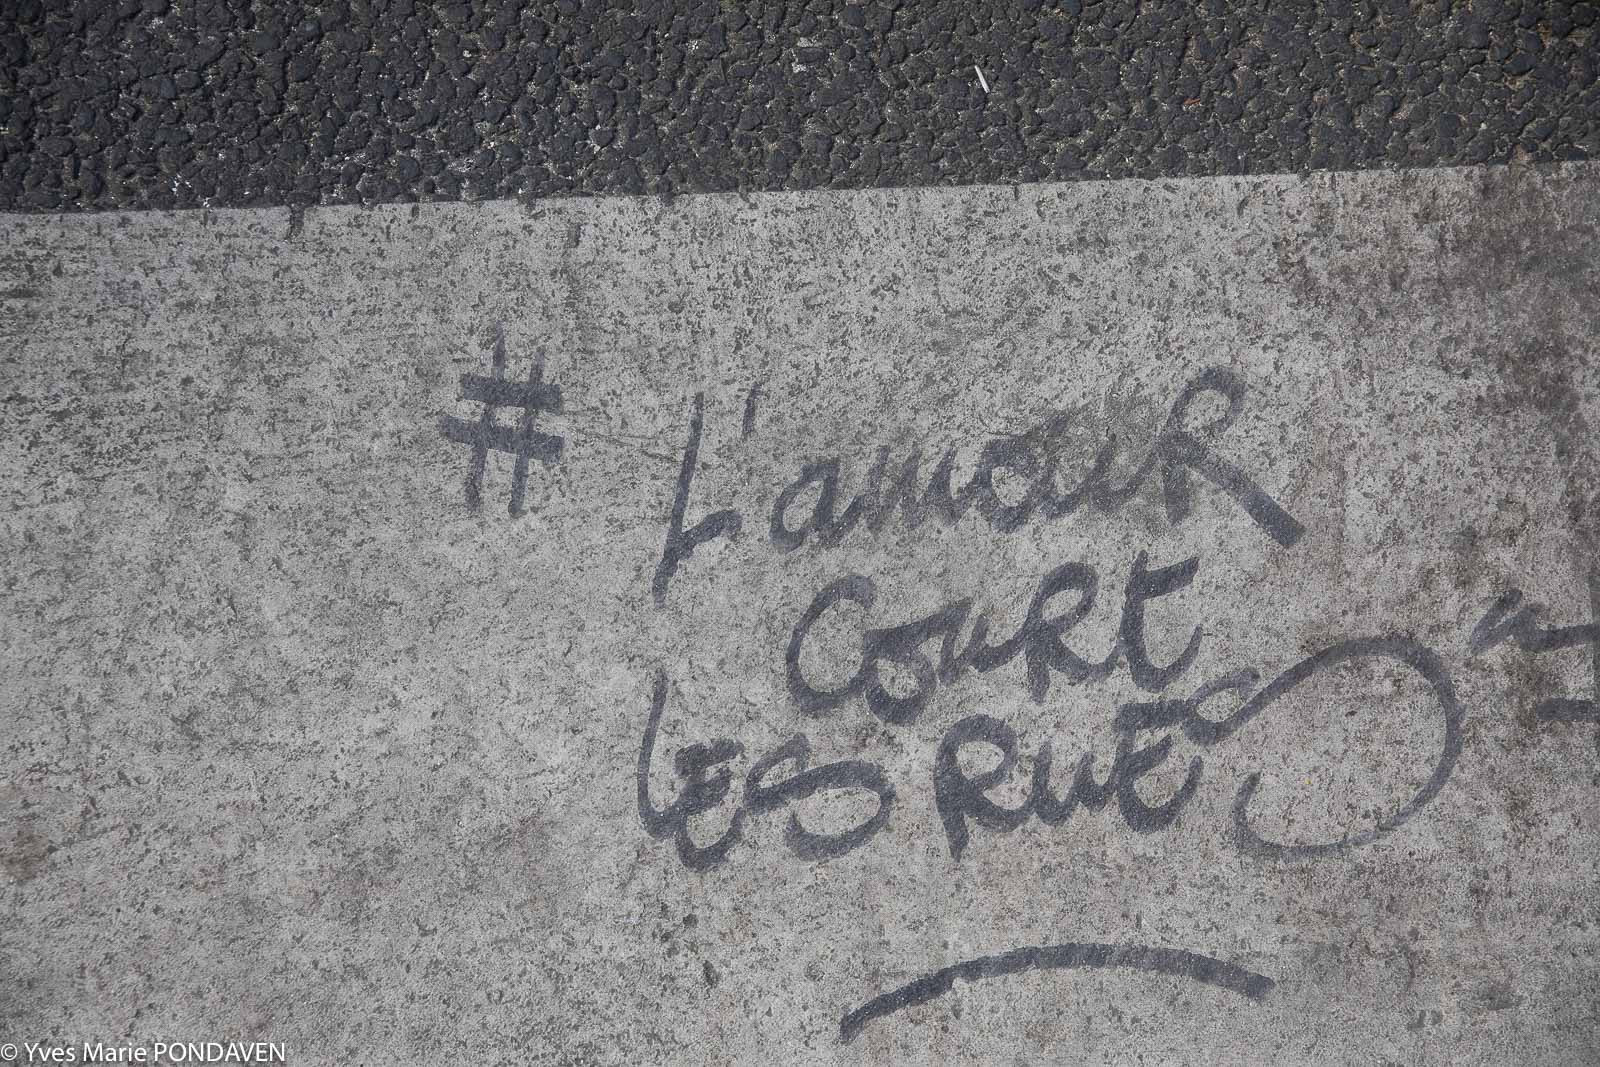 # L'amouR
CouRt
LES RUES
© Yves Marie PONDAVEN